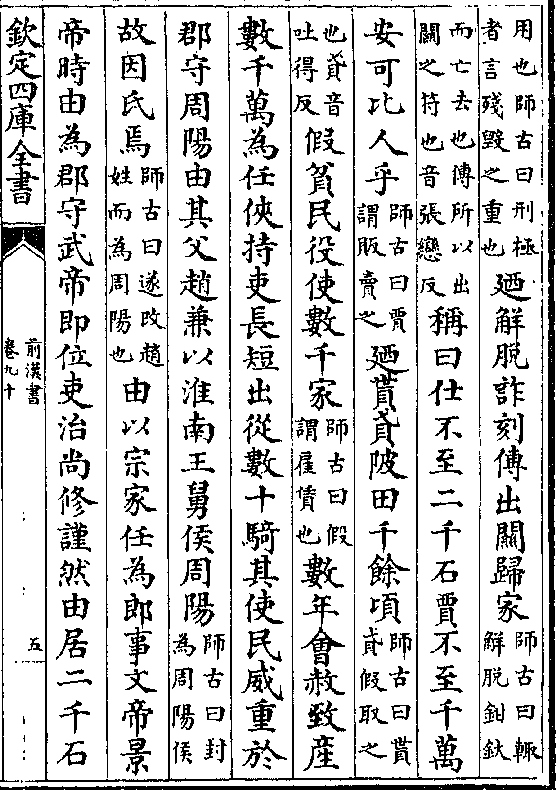 用也師古曰刑極
者言殘毀之重也
廼解脫詐刻傳出關歸家
師古曰輒
解脫鉗釱
而亡去也傳所以出
關之符也音張戀反
稱曰仕不至二千石賈不至千萬
安可比人乎
師古曰賈
謂販賣之
廼貰貣陂田千餘頃
師古曰貰
貣假取之
也貣音
吐得反
假貧民役使數千家
師古曰假
謂雇賃也
數年會赦致産
數千萬為任俠持吏長短出從數十騎其使民威重於
郡守周陽由其父趙兼以淮南王舅侯周陽
師古曰封
為周陽侯
故因氏焉
師古曰遂改趙
姓而為周陽也
由以宗家任為郎事文帝景
帝時由為郡守武帝即位吏治尚修謹然由居二千石
欽定四庫全書
前漢書
卷九十
五